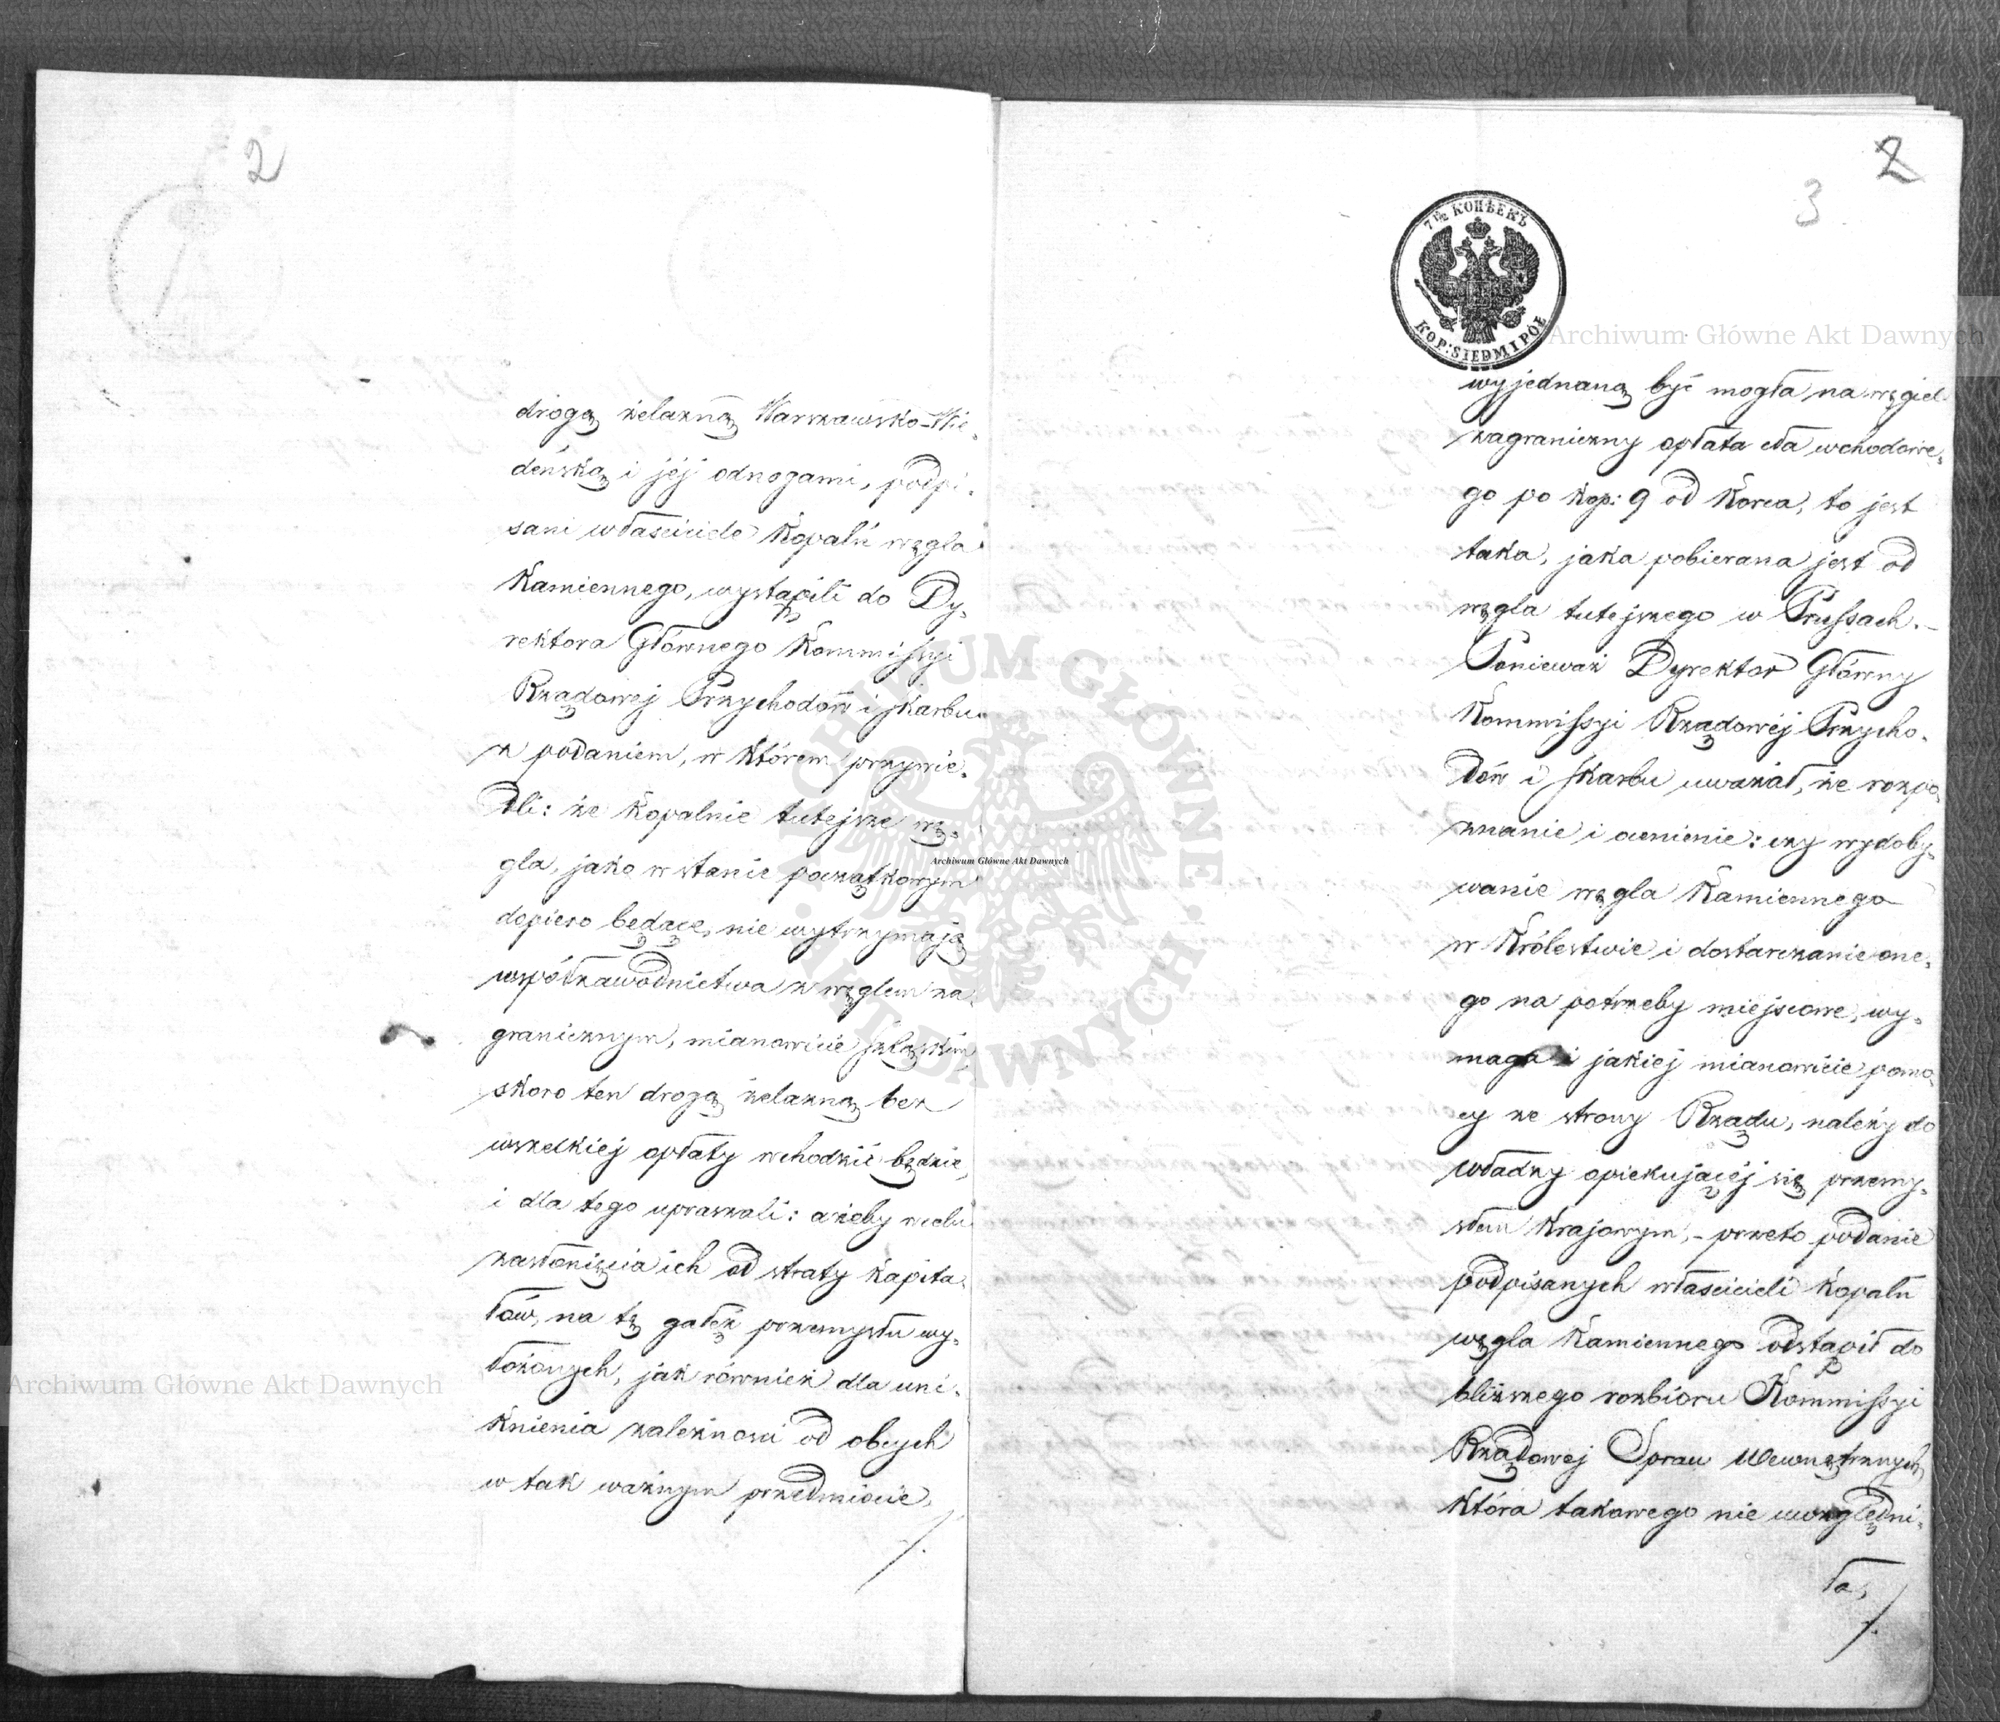 2
drogą żelazną Warszawsko-Wie-
deńską i jéj odnogami, podpi-
sani właściciele Kopalń węgla
Kamiennego, wystąpili do Dy-
rektora Głównego Kommissyi
Rządowej Przychodów i Skarbu
z podaniem, w którem przywie-
dli: że Kopalnie tutejsze wę-
gla, jako w stanie początkowym
dopiero będące, nie wytrzymają
współzawodnictwa z węglem za-
granicznym, mianowicie szląskim,
skoro ten drogą żelazną bez
wszelkiej opłaty wchodzić będzie,
i dla tego upraszali: ażeby w celu
zasłonięcia ich od straty kapita-
łów, na tę gałęź przemysłu wy-
łożonych, jak również dla uni-
knienia zależności od obcych
w tak ważnym przedmiocie,
2
3
7 1/2 КОПѢЕКЪ
KOP: SIEDM I PÓŁ
wyjednaną być mogła na węgiel
zagraniczny opłata cła wchodowe-
go po kop: 9 od Korca, to jest
taka, jaka pobierana jest od
węgla tutejszego w Prussach.-
Ponieważ Dyrektor Główny
Kommissyi Rządowéj Przycho-
dów i Skarbu uważał, że rozpo-
znanie i ocenienie: czy wydoby-
wanie węgla Kamiennego
w Królestwie i dostarczanie one-
go na potrzeby miejscowe, wy-
maga i jakiej mianowicie pomo-
cy ze strony Rządu, należy do
władzy opiekującéj się przemy-
słem Krajowym,- przeto podanie
podpisanych właścicieli Kopalń
węgla Kamiennego odstąpił do
bliższego rozbioru Kommissyi
Rządowej Spraw Wewnętrznych,
która takowego nie uwzględni-
ła,
Archiwum Główne Akt Dawnych
Archiwum Główne Akt Dawnych
Archiwum Główne Akt Dawnych
ARCHIWUM GŁÓWNE AKT DAWNYCH